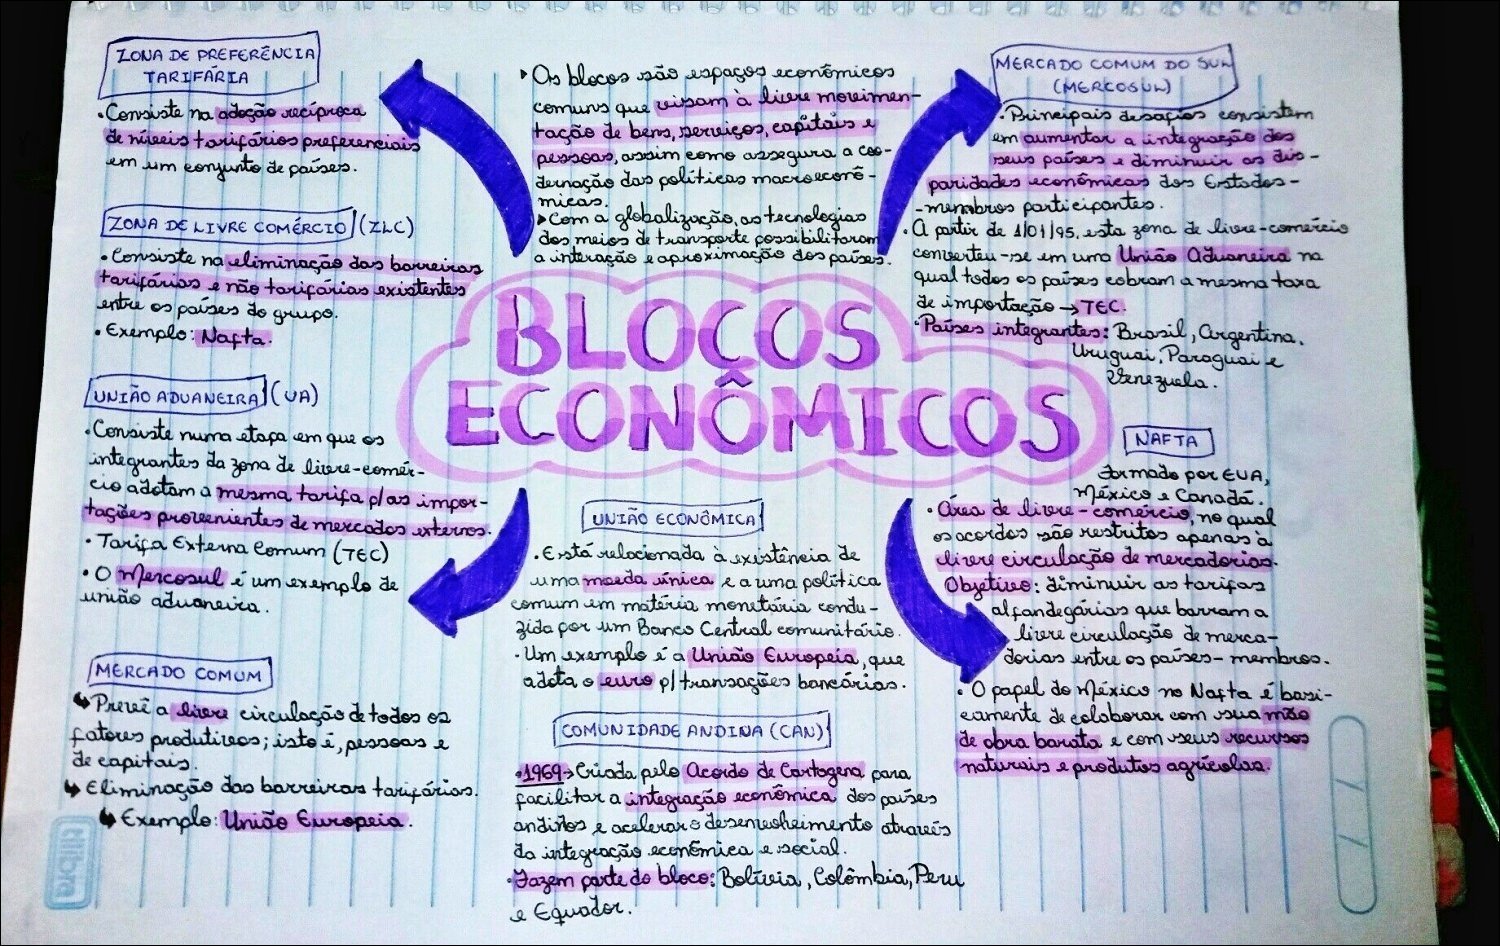 ZONA DE PREFERÊNCIA
TARIFÁRIA
• Consiste na adoção recíproca
de níveis tarifários preferenciais
em um conjunto de países.
ZONA DE LIVRE COMÉRCIO (ZLC)
• Consiste na eliminação das barreiras
tarifárias e não tarifárias existentes
entre os países do grupo.
• Exemplo: Nafta.
UNIÃO ADUANEIRA (UA)
• Consiste numa etapa em que os
integrantes da zona de livre-comér-
cio adotam a mesma tarifa p/ as impor-
tações provenientes de mercados externos.
• Tarifa Externa Comum (TEC)
• O Mercosul é um exemplo de
união aduaneira.
MERCADO COMUM
Prevê a livre circulação de todos os
fatores produtivos; isto é, pessoas e
de capitais.
Eliminação das barreiras tarifárias.
Exemplo: União Europeia.
Os blocos são espaços econômicos
comuns que visam à livre movimen-
tação de bens, serviços, capitais e
pessoas, assim como assegura a coo-
dernação das políticas macroeconô-
micas.
Com a globalização, as tecnologias
dos meios de transporte possibilitaram
a interação e aproximação dos países.
BLOCOS
ECONÔMICOS
UNIÃO ECONÔMICA
• Está relacionada à existência de
uma moeda única e a uma política
comum em matéria monetária condu-
zida por um Banco Central comunitário.
• Um exemplo é a União Europeia, que
adota o euro p/ transações bancárias.
COMUNIDADE ANDINA (CAN)
• 1969 → Criada pelo Acordo de Cartagena para
facilitar a integração econômica dos países
andinos e acelerar o desenvolvimento através
da integração econômica e social.
• Fazem parte do bloco: Bolívia, Colômbia, Peru
e Equador.
MERCADO COMUM DO SUL
(MERCOSUL)
• Principais desafios consistem
em aumentar a integração dos
seus países e diminuir as dis-
paridades econômicas dos Estados-
-membros participantes.
• A partir de 1/01/95, esta zona de livre-comércio
converteu-se em uma União Aduaneira na
qual todos os países cobram a mesma taxa
de importação → TEC.
• Países integrantes: Brasil, Argentina,
Uruguai, Paraguai e
Venezuela.
NAFTA
formado por EUA,
México e Canadá.
• Área de livre-comércio, no qual
os acordos são restritos apenas à
livre circulação de mercadorias.
Objetivo: diminuir as tarifas
alfandegárias que barram a
livre circulação de merca-
dorias entre os países-membros.
• O papel do México no Nafta é basi-
camente de colaborar com sua mão
de obra barata e com seus recursos
naturais e produtos agrícolas.
tilibra